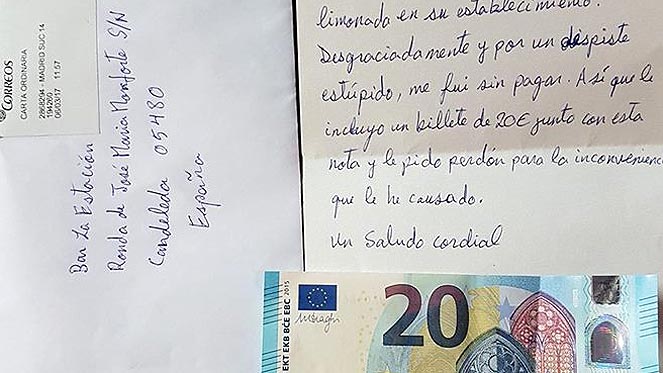 CORREOS
CARTA ORDINARIA
2868294 - MADRID SUC 14
194260
06/03/17 11:57
Bar La Estación
Ronda de José Maria Monforte S/N
Candeleda 05480
España
limonada en su establecimiento.
Desgraciadamente y por un despiste
estúpido, me fui sin pagar. Así que le
incluyo un billete de 20€ junto con esta
nota y le pido perdón para la inconvenienc
que le he causado.
Un Saludo cordial
EKT EKB BCE EBC 2015
20